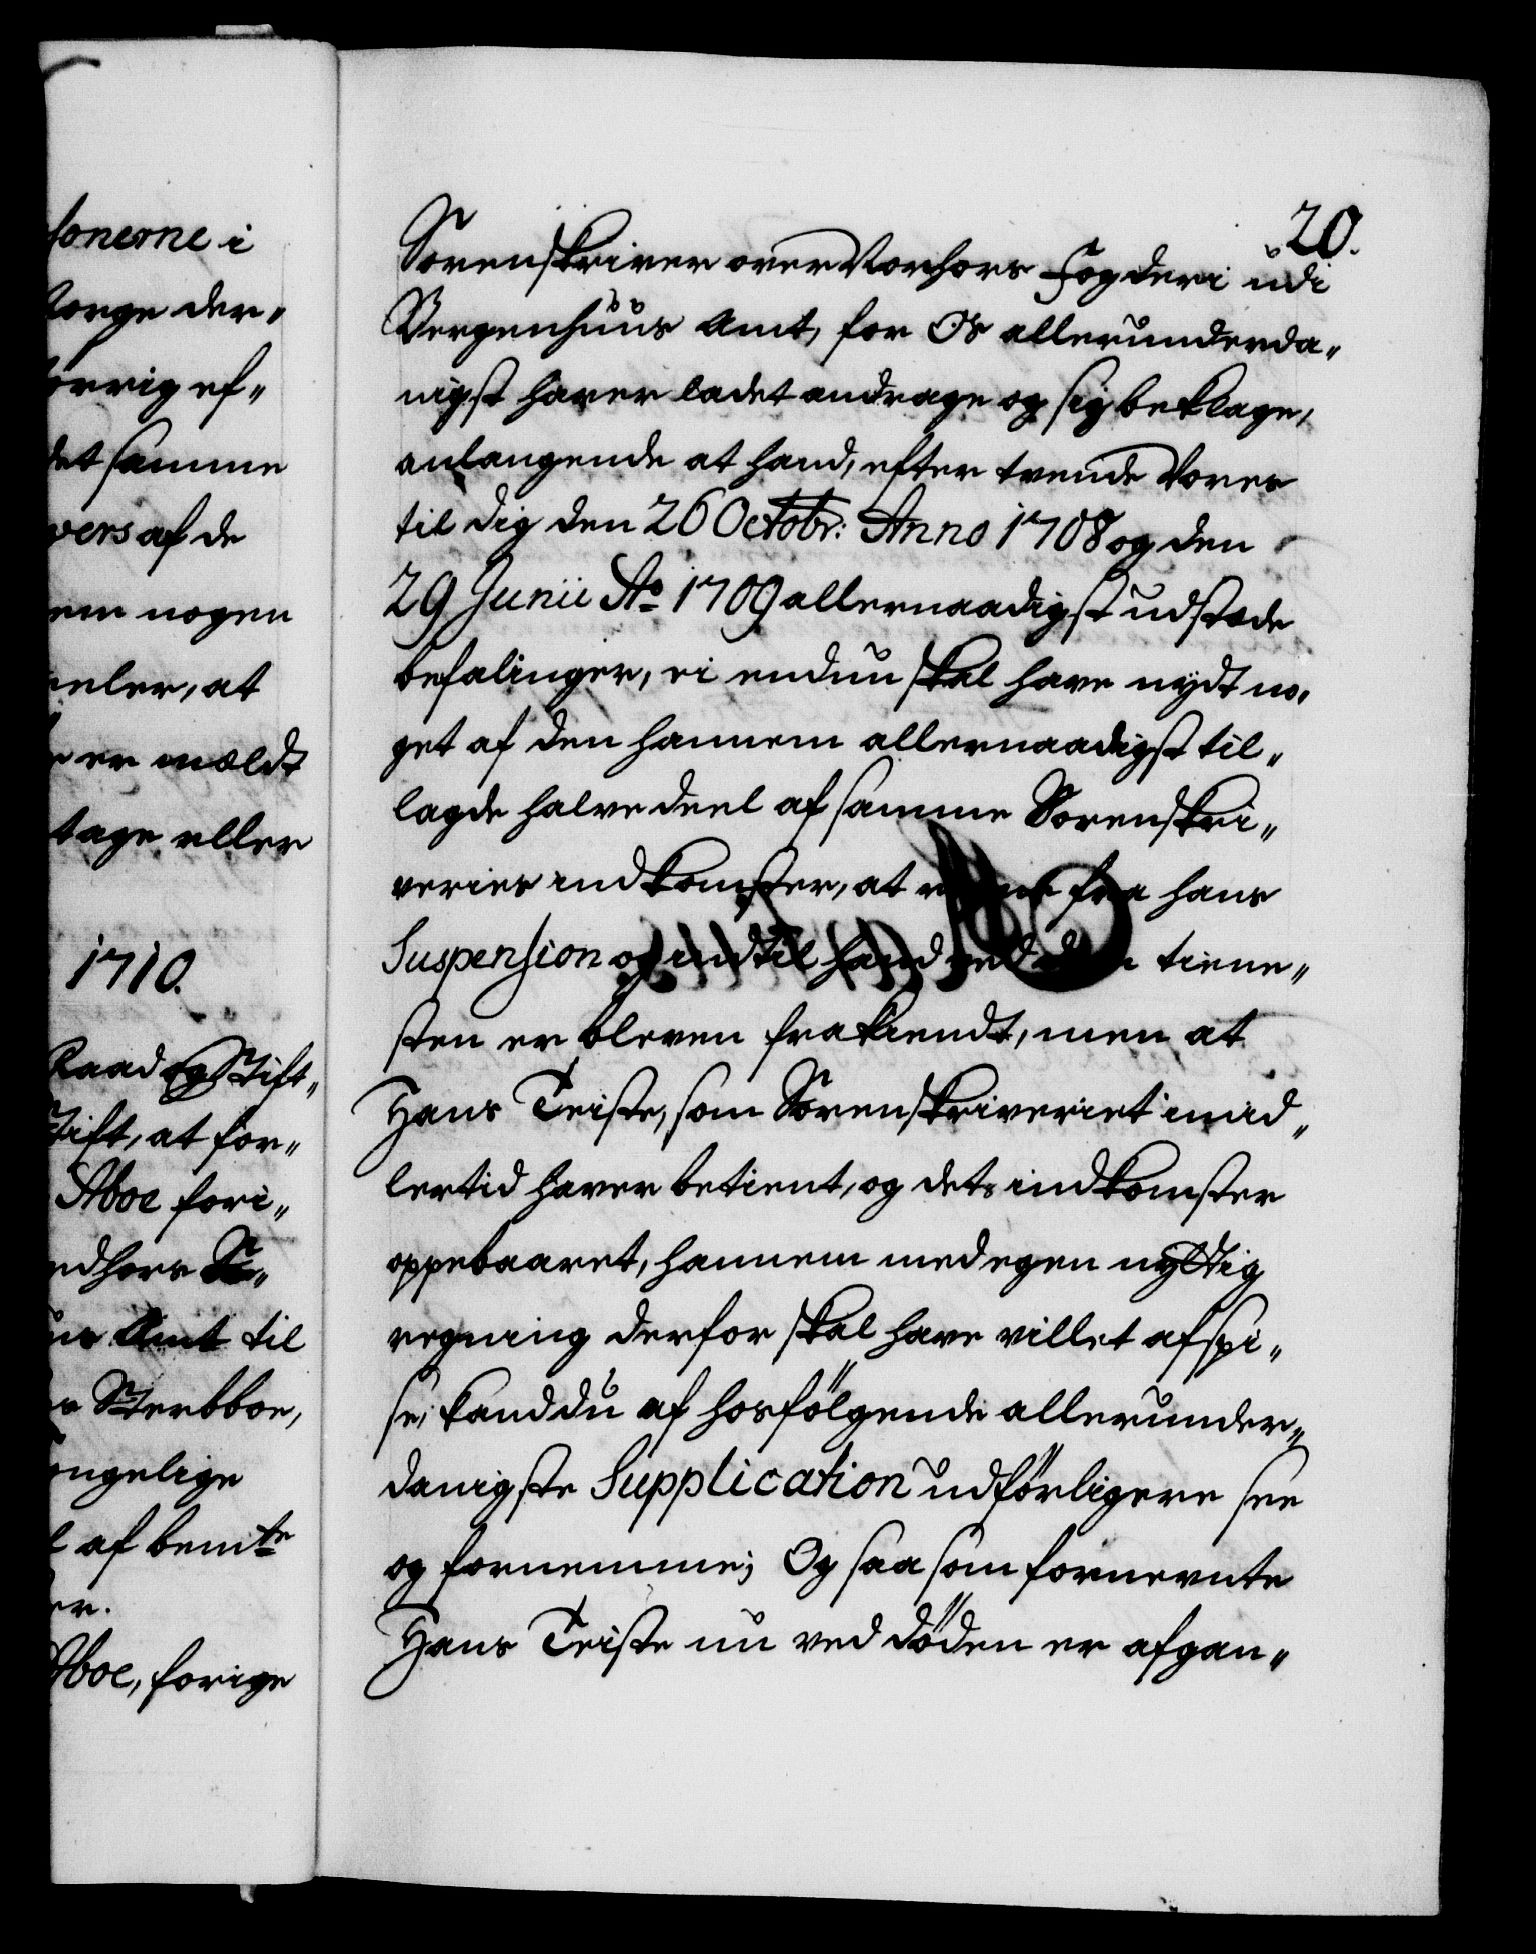 sonerne i
Norge der„
förrig ef„
det samme
vers af de
nogen
at
er meldt
tage eller
1710.
Raad og Stift„
Stift, at for„
Aboe fori„
Amt til
Sterbboe,
af bemte
Aboe, forige
20.
Sorenskriver over Nordhors Fogderi udi
Bergenhuus Amt, for Os allerunderda„
nigst haver ladet andrage og sig beklage,
anlangende at hand, efter tvende Vores
til dig den 26 Octobr: Anno 1708 og den
29 Junii Ao 1709 allernaadigst udstæde
befalinger, ei endnu skal have nydt no„
get af den hannem allernaadigst til„
lagde halve deel af samme Sorenskri„
veries indkomster, at regne fra hans
Suspension og indtil hand ved dom tiene„
sten er bleven frakiendt, men at
Hans Teiste, som Sorenskriveriet imid„
lertid haver betient, og dets indkomster
oppebaaret, hannem med egen nyttig
regning derfor skal have villet afspi„
se, kand du af hosfölgende allerunder„
danigste Supplication udförligere see
og fornemme; Og saasom fornevnte
Hans Teiste nu ved döden er afgan„